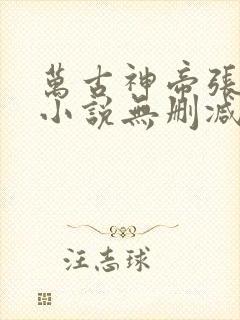 萬古神帝張
小説無刪減
汪志球